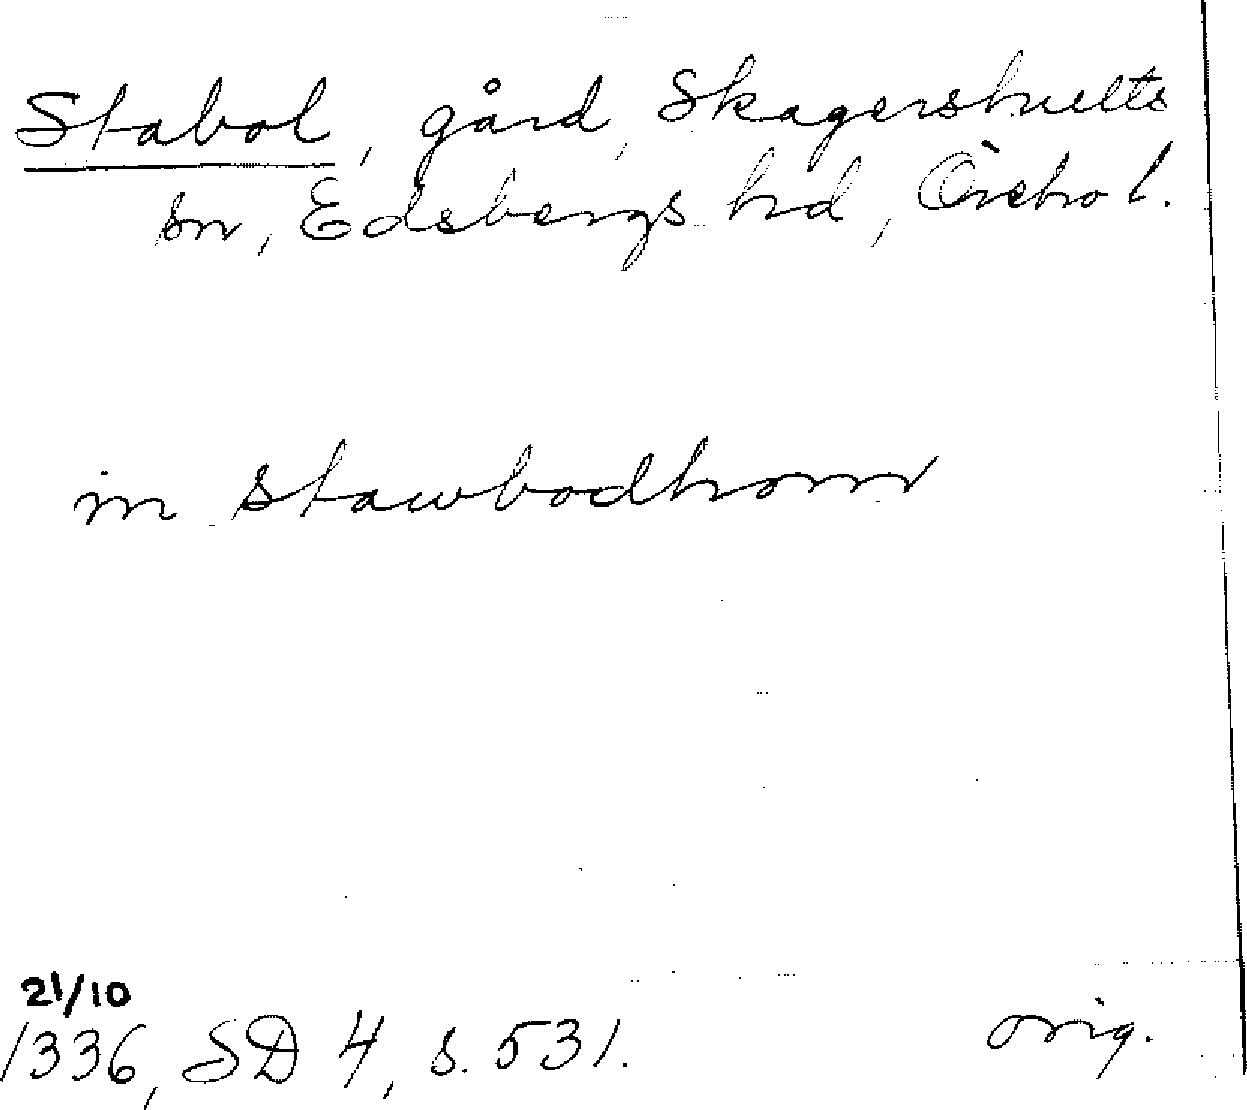 Stabol, gård, Skagershults
sn, Edsbergs hd, Örebro l.
in stawbodhom
21/10
1336, SD 4, s. 531. orig.